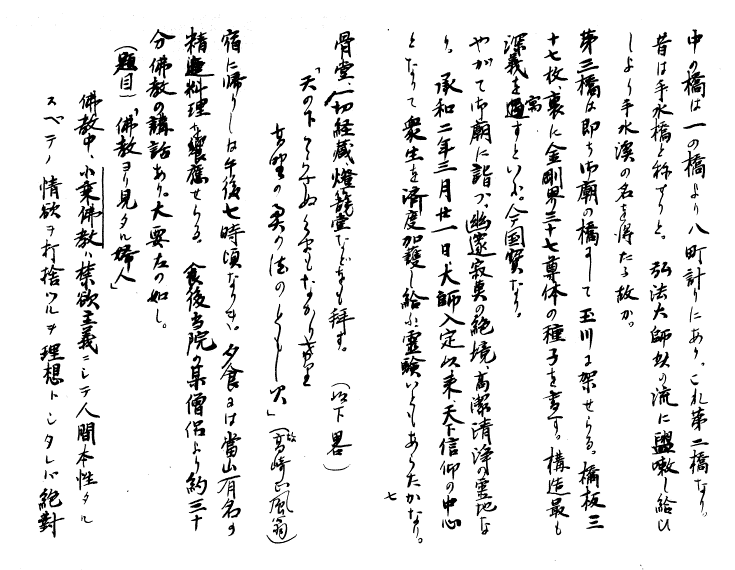 中の橋は一の橋より八町計りにあり。これ第二橋なり。
昔は手水橋と称せりと。弘法大師此の流に盥嗽し給ひ
しより手水渓の名を得たる故か。
第三橋は即ち御廟の橋にして玉川に架せらる。橋板三
十七枚、裏に金剛界三十七尊体の種子を書す。構造最も
深義を寓すといふ。今国宝なり。
やがて御廟に詣づ、幽邃寂寞の絶境、高潔清浄の霊地な
り。承和二年三月廿一日、大師入定以来、天下信仰の中心
となりて衆生を済度加護し給ふ霊験いともあらたかなり。
七
骨堂、一切経蔵燈籠堂などをも拝す。(以下畧)
「天の下てらさぬくまもなかりけり
高野の奥の法のともし火」(故高崎正風翁)
宿に帰りしは午後七時頃なりき。夕食には當山有名の
精進料理を饗應せらる。食後当院の某僧侶より約三十
分佛教の講話あり。大要左の如し。
(題目)「佛教ヨリ見タル婦人」
佛教中、小乗佛教ハ禁欲主義ニシテ人間本性タル
スベテノ情欲ヲ打捨ツルヲ理想トシタレバ絶對